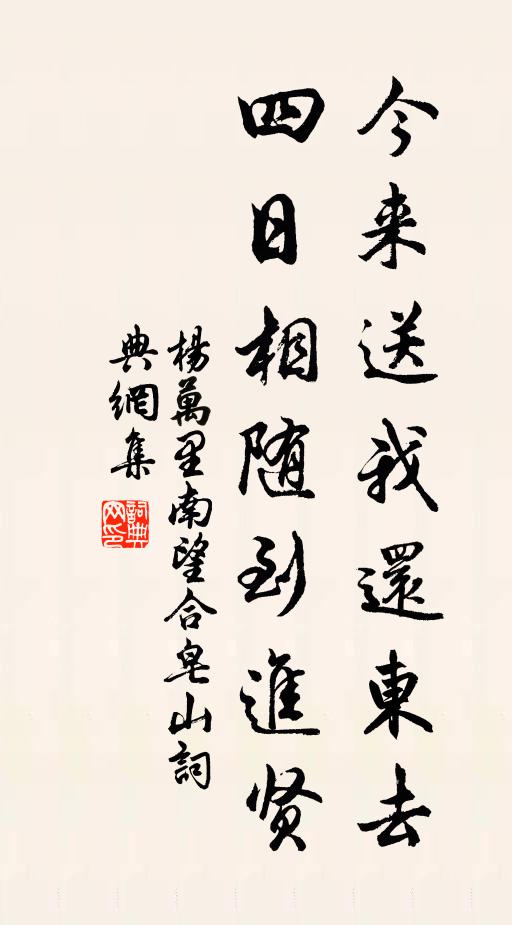 今来送我還東去
四日相随到進贤
楊萬里南望合皂山詞
典網集
詞典网印